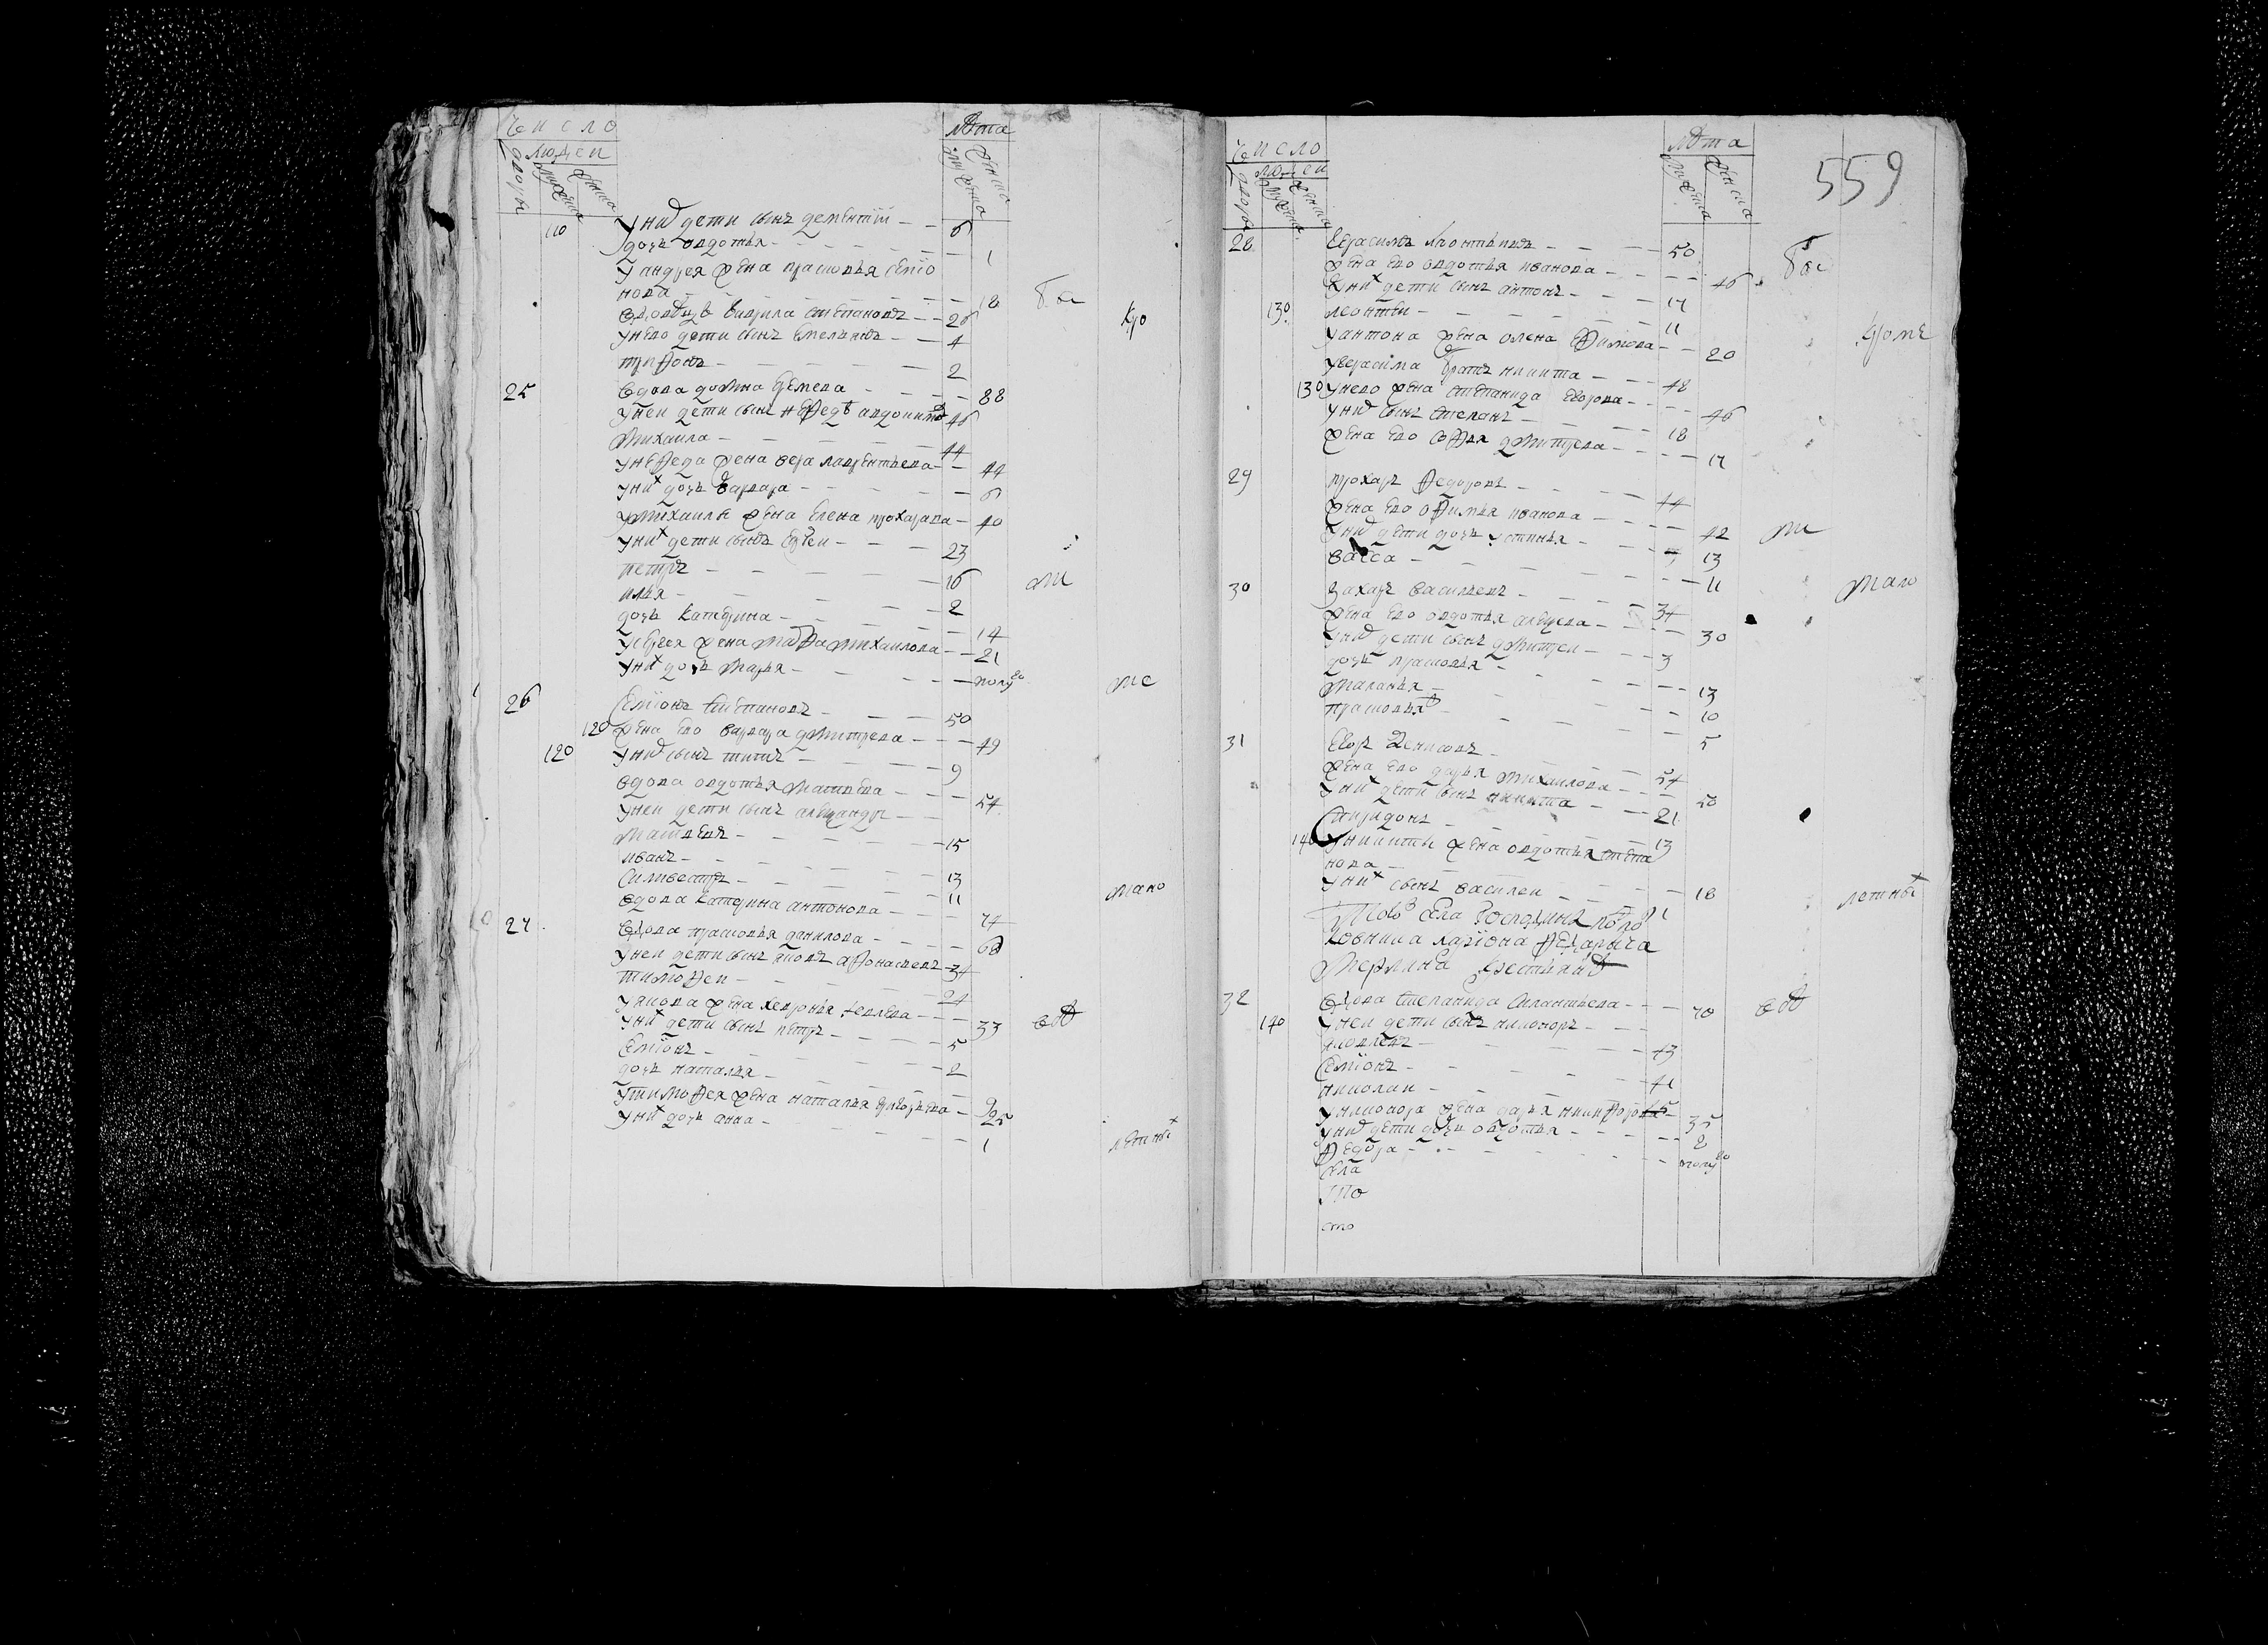 Число
людеи
дворы
мужска
женска
лѣта
мужска
женска
110 У них дети сынъ дементїи - - 6
дочь овдотья - - - 1
У андрея жена прасковья семїо
нова - - - 18
вдовецъ гаврила степановъ - - 26
у него дети сынъ емельянъ - - 4
трифонъ - - - 2
25 вдова домна демева - - - 88
у неи дети сынъ нефедъ авдокимов 46
михаила - - - 44
у нефеда жена вера лаврентьева - - 44
у них дочь варвара - - - 6
у михаилы жена елена прохарава - 40
у них дети сынъ сергеи - - - 23
петръ - - - 16
илья - - - 2
дочь катерина - - - 14
у сергея жена марфа михаилова - - 21
у них дочь марья - - - полу го
26 семїонъ степановъ - - - 50
120 жена ево варвара дмитрева - - - 49
120 у них сынъ титъ - - - 9
вдова овдотья матвѣева - - - 54
у неи дети сынъ алеѯандръ - -
матвеи - - - 15
иванъ - - - 13
силивестръ - - - 11
вдова катерина антонова - - - 74
27 вдова прасковья данилова - - - 68
у неи дети сынъ яковъ афонасьевъ - 34
тимофеи - - - 24
у якова жена хевронья - - 33
у них дети сынъ петръ - - - 5
семїонъ - - - 2
дочь наталья - - -
у тимофея жена наталья григорьева - 25
у них дочь анна - - - 1
ба
кро
ли
ме
мало
воф
летных
Число
людеи
дворы
мужска
женска
лѣта
мужска
женска
559
28 герасимъ леонтьивъ - - - 50
жена ево овдотья иванова - - - 46
у них дети сынъ антонъ - - - 17
130 леонтеи - - - 11
у антона жена олена ефимова - - 20
у герасима братъ никита - - - 48
130 у него жена степанида егорова - - - 46
у них сынъ степанъ - - - 18
жена ево софья дмитрева - - - 17
29 прохаръ федоровъ - - - 44
жена ево офимья иванова - - - 42
у них дети дочь устинья - - - 13
васса - - - 11
30 захаръ васильевъ - - - 34
жена ево овдотья алеѯева - - - 30
у них дети сынъ дмитреи - - - 3
дочь прасковья - - - 13
маланья - - - 10
прасковья - - - 5
31 егоръ денисовъ - - - 54
жена ево дарья михаилова - - - 50
у них дети сынъ никита - - 21
спиридонъ - - - 13
140 у никиты жена овдотья степа
нова - - - 18
у них сынъ василеи - - - 1
Тово села господина по
ковника ларїона
мерлина крестьянѣ
32 вдова степанида - - - 70
140 у неи дети сынъ никоноръ - - -
яковлевъ - - - 43
семїонъ - - - 41
николаи - - -
у никонора жена дарья никифорова - 35
у них дети дочь овдотья - - - 8
федора - - - полу го
села
что
сто
бас
кроме
ли
мало
воф
летных